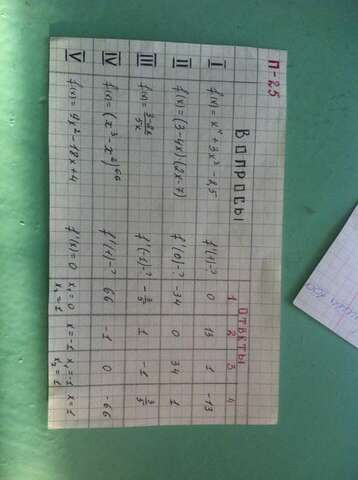 П-25
ВОПРОСЫ ОТВЕТЫ
1 2 3 4
I f(x) = x⁴ + 3x³ - 25 f'(1)-? 0 13 1 -13
II f(x) = (3-4x)·(2x-7) f'(0)-? -34 0 34 1
III f(x) = (3-2x)/(5x) f'(-1)-? -3/5 1 -1 3/5
IV f(x) = (x³-x²)⁶⁶ f'(1)-? 66 -1 0 -66
V f(x) = 9x² - 18x + 4 f'(x) = 0 x₁ = 0 x = -1 x₁ = -1 x = 1
x₂ = 1 x₂ = 1